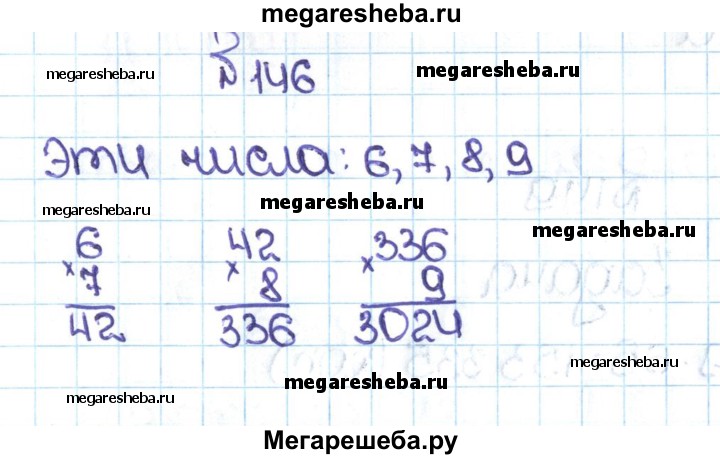 megaresheba.ru
№146
megaresheba.ru megaresheba.ru
Эти числа: 6, 7, 8, 9
megaresheba.ru megaresheba.ru
megaresheba.ru
6 42 336
× 7 × 8 × 9
42 336 3024
megaresheba.ru
megaresheba.ru
megaresheba.ru
Мегарешеба.ру